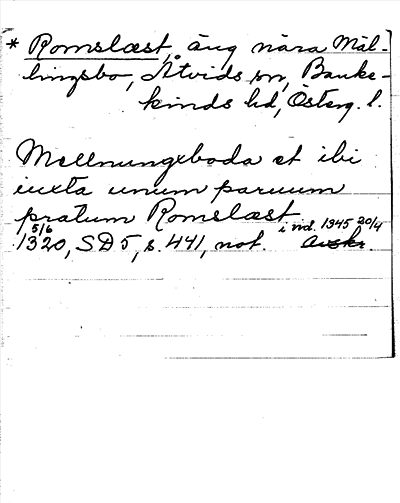 * Romslæst, äng nära Mäl-
lingsbo, Åtvids sn, Banke-
kinds hd, Österg. l.
Mellnungxboda et ibi
iuxta unum paruum
pratum Romslæst
5/6 1320, SD 5, s. 441, not. i vid. 1345 20/4 Avskr.